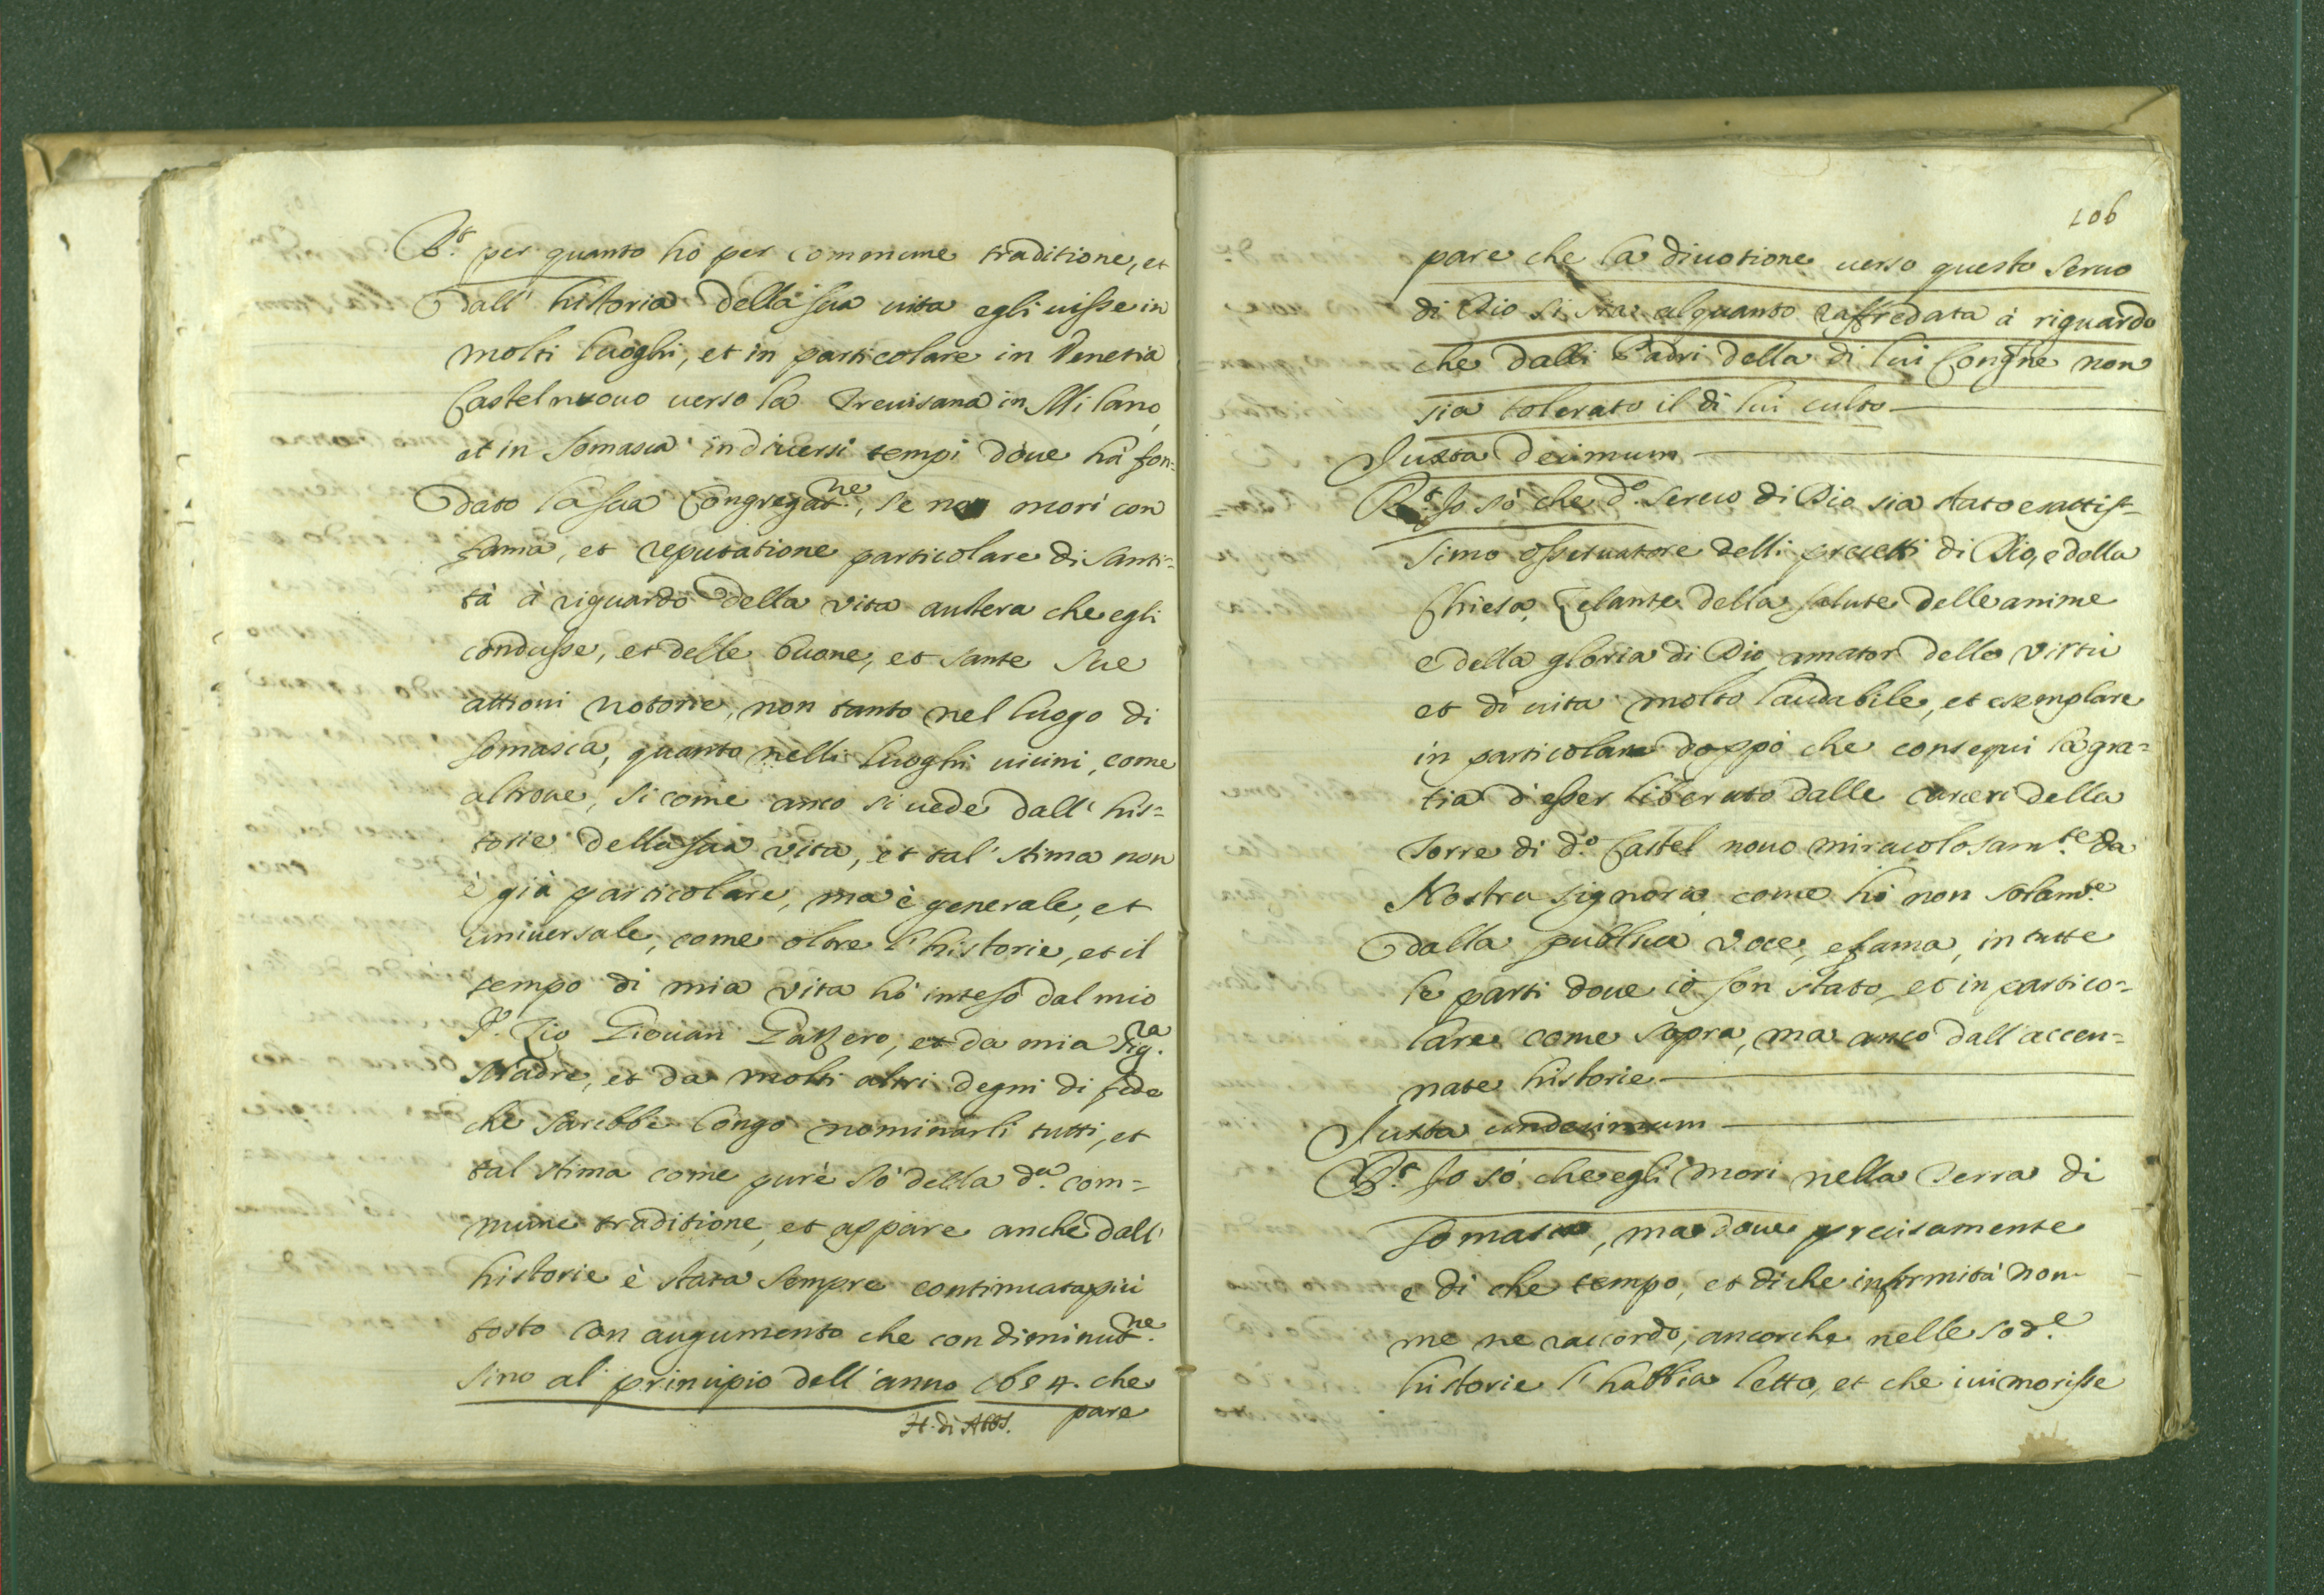 R.t per quanto hò per commune traditione, et
dall' historia della sua uita egli uisse in
molti luoghi, et in particolare in Venetia
Castelnuouo uerso la Treuisana in Milano,
et in Somasca in diuersi tempi doue hà fon=
dato la sua Congregat.ne, se ne morì con
fama, et reputatione particolare di santi=
tà à riguardo della vita austera che egli
condusse, et delle buone, et sante sue
attioni notorie, non tanto nel luogo di
Somasca, quanto nelli luoghi uicini, come
altroue, si come anco si uede dall' his=
torie della sua vita, et tal' stima non
è già particolare, ma è generale, et
uniuersale, come oltre l' historie, et il
tempo di mia vita hò inteso dal mio
Zio Giouan, et da mia Sig.ra
Madre, et da molti altri degni di fede
che sarebbe longo nominarli tutti, et
tal stima come pure sò della d.a com=
mune traditione, et appare anche dall'
historie è stata sempre continuata più
tosto con augumento che con diminut.ne
sino al principio dell' anno 1654. che
H. di Abbs. pare
106
pare che la diuotione uerso questo seruo
di Dio si sia alquanto raffredata à riguardo
che dalli Padri della di lui Congne non
sia tolerato il di lui culto
Juxta decimum
R.t Io sò che d.o seruo di Dio sia stato esattis=
simo osseruatore delli precetti di Dio, e della
Chiesa, Zelante della salute delle anime
e della gloria di Dio, amator delle virtù
et di uita molto laudabile, et esemplare
in particolare doppò che conseguì la gra=
tia d'esser liberato dalle carceri della
Torre di d.o Castel nouo miracolosam.te da
Nostra Signora come hò non solam.te
dalla publica voce, e fama, in tutte
le parti doue io son stato, et in partico=
lare come sopra, ma anco dall' accen=
nate historie
Juxta undecimum
R.t Io sò che egli morì nella Terra di
Somasca, ma doue precisamente
e di che tempo, et di che infirmità non
me ne raccordo, ancorche nelle sod.e
historie l' habbia letto, et che iui morisse